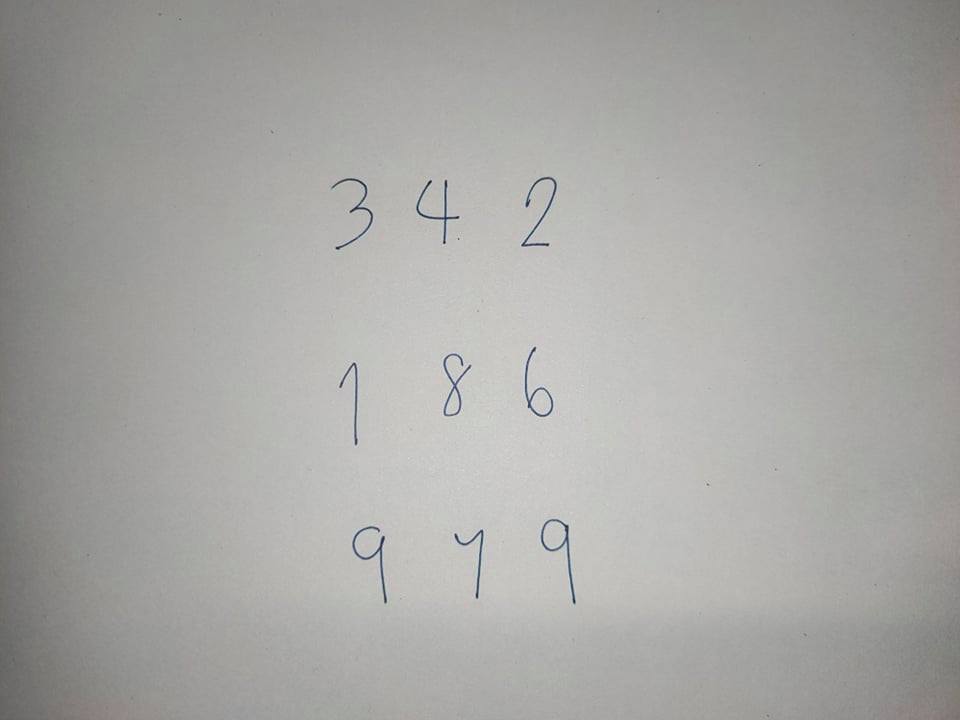 3 4 2
1 8 6
9 7 9